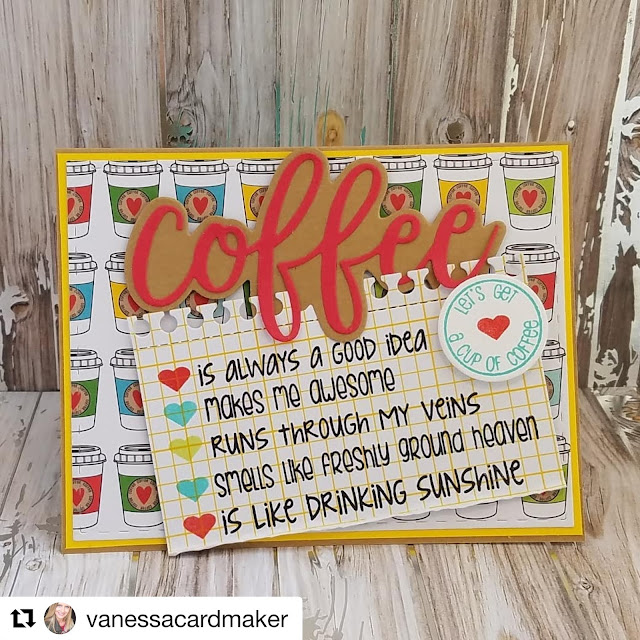 coffee
LET'S GET
A CUP OF COFFEE
is always a good idea
makes me awesome
runs through my veins
smells like freshly ground heaven
is like drinking sunshine
vanessacardmaker